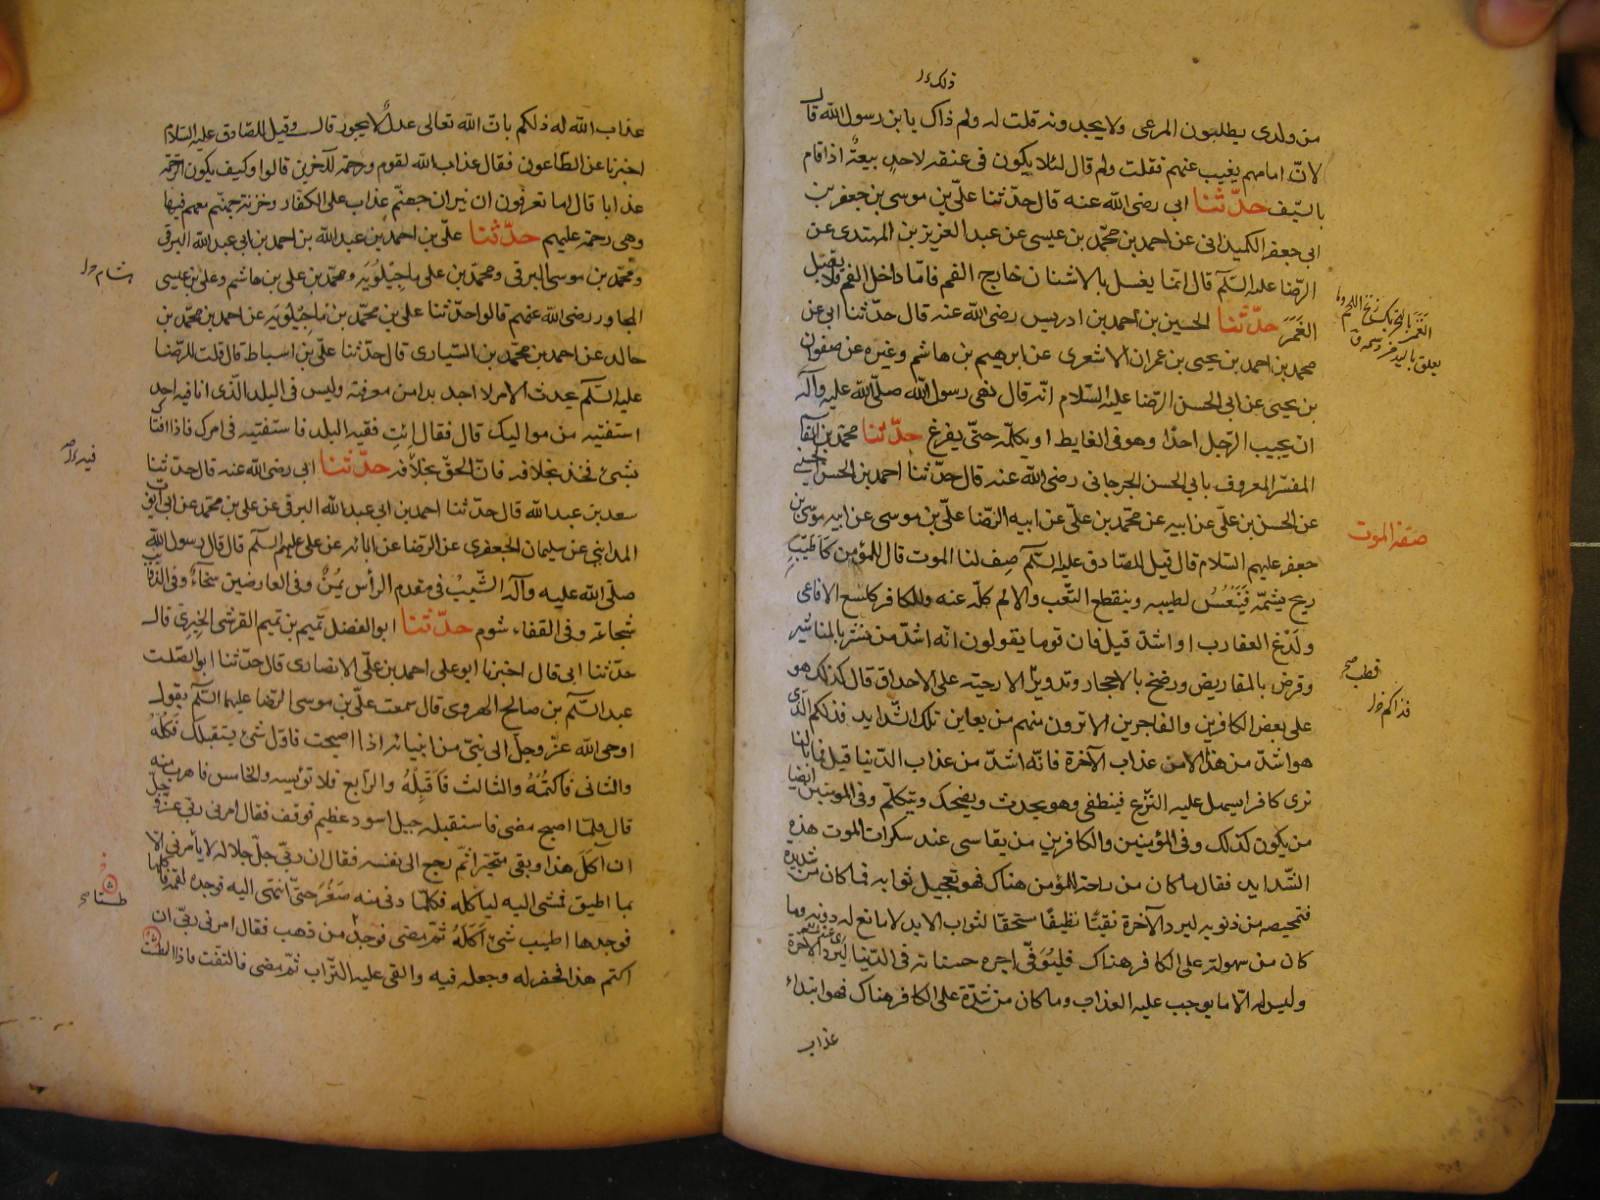 ذلك
من ولدى يطلبون المرعى ولا يجدونه قلت له ولم ذاك يا بن رسول الله قال
لانّ امامهم يغيب عنهم فقلت ولم قال لئلا يكون فى عنقه لاحد بيعة اذا قام
بالسّيف حدّثنا ابى رضى الله عنه قال حدّثنا علىّ بن موسى بن جعفر بن
ابى جعفر الكميذانى عن احمد بن محمّد بن عيسى عن عبد العزيز بن المهتدى عن
الرّضا عليه السّلم قال انما يغسل بالاشنان خارج الفم فامّا داخل الفم فلا يقبل
الغَمَر حدّثنا الحسين بن احمد بن ادريس رضى الله عنه قال حدّثنا ابى عن
محمد بن احمد بن يحيى بن عمران الاشعرى عن ابرهيم بن هاشم وغيره عن صفوان
بن يحيى عن ابى الحسن الرّضا عليه السّلام انّه قال نهى رسول الله صلّى الله عليه وآله
ان يجيب الرّجل احدًا وهو فى الغايط او يكلّمه حتّى يفرغ حدّثنا محمّد بن القاسم
المفسّر المعروف بابى الحسن الجرجانى رضى الله عنه قال حدّثنا احمد بن الحسن الحسينى
عن الحسن بن علىّ عن ابيه عن محمّد بن علىّ عن ابيه الرّضا علىّ بن موسى عن ابيه موسى بن
جعفر عليهم السّلام قال قيل للصّادق عليه السّلم صِف لنا الموت قال للمؤمن كاَطيَبِ
ريح يشمّه فَيَنْعُسُ لطيبه وينقطع التّعب والالم كلّه عنه وللكافر كلسع الافاعى
ولَدْغ العقارب او اشدّ قيل فان قوما يقولون انه اشدّ من نشر بالمناشير
وقرض بالمقاريض ورضخ بالاحجار وتدوير الارحيه على الاحداق قال كذلك هو
على بعض الكافرين والفاجرين الا ترون منهم من يعاين تلك الشّدايد فذلكم الّذى
هو اشدّ من هذا الا من عذاب الآخرة فانّه اشدّ من عذاب الدّنيا قيل فما بالنا
نرى كافرا يسهل عليه النّزع فينطفى وهو يحدث ويضحك ويتكلّم وفى المومنين ايضا
من يكون كذلك وفى المؤمنين والكافرين من يقاسى عند سكرات الموت هذه
الشّدايد فقال ما كان من راحة للمؤمن هناك فهو تعجيل ثوابه وما كان من شديدة
فتمحيصه من ذنوبه ليرد الآخرة نقيّا نظيفًا مستحقّا لثواب الابد لا مانع له دونه وما
كان من سهولة على الكافر هناك فليُوَفّى اجره حسناته فى الدّنيا ليرد الآخرة
وليس له الّا ما يوجب عليه العذاب وما كان من شدّة على الكافر هناك فهو ابتداء
عذاب
صفة الموت
عذاب الله له ذلكم بانّ الله تعالى عدلٌ لا يجور قال وقيل للصّادق عليه السّلام
اخبرنا عن الطّاعون فقال عذاب الله لقوم ورحمة لآخرين قالوا وكيف يكون الرحمة
عذابا قال اما تعرفون ان نيران جهنّم عذاب على الكفّار وخزنة جهنّم معهم فيها
وهى رحمة عليهم حدّثنا علىّ بن احمد بن عبد الله بن احمد بن ابى عبد الله البرقى
ومحمّد بن موسى البرقى ومحمد بن على ماجيلويه ومحمّد بن على بن هاشم وعلى بن عيسى
المجاور رضى الله عنهم قالوا حدّثنا على بن محمّد بن ماجيلويه عن احمد بن محمّد بن
خالد عن احمد بن محمّد بن السّيارى قال حدّثنا علىّ بن اسباط قال قلت للرّضا
عليه السّلم يحدث الامر لا اجد بدا من معرفته وليس فى البلد الّذى انا فيه احد
استفتيه من مواليك قال فقال ائتِ فقيه البلد فاستفتيه فى امرك فاذا افتاك
بشئ فخذ بخلافه فانّ الحقّ بخلافه حدّثنا ابى رضى الله عنه قال حدّثنا
سعد بن عبد الله قال حدّثنا احمد بن ابى عبد الله البرقى عن على بن محمّد عن ابى ايوب
المداينى عن سليمان الجعفرى عن الرّضا عن ابائه عن على عليهم السّلم قال قال رسول الله
صلّى الله عليه وآله الشّيبُ فى مقدم الرأس يُمنٌ وفى العارضين سخآءٌ وفى الذّوايب
شجاعة وفى القفاء شوم حدّثنا ابو الفضل تميم بن تميم القرشى الحِيرى قال
حدّثنا ابى قال اخبرنا ابو على احمد بن علىّ الانصارى قال حدّثنا ابو الصّلت
عبد السّلم بن صالح الهروى قال سمعت علىّ بن موسى الرّضا عليهما السّلم يقول
اوحى الله عزّ وجلّ الى نبىّ من انبيائه اذا اصبحت فاوّل شئ يستقبلك فَكُلْهُ
والثانى فَاكتُمْهُ والثالث فَاَقبِلْهُ والرّابع فلا تؤيسه والخامس فاهرب منه
قال فلمّا اصبح مضى فاستقبله جبل اسود عظيم فوقف فقال امرنى ربّى عزّ وجلّ
ان اكلَ هذا وبقى متحيّرا ثمّ رجع الى نفسه فقال ان ربّى جلّ جلاله لا يأمرنى الّا
بما اطيق فمشى اليه لياكله فكلّما دنى منه صَغُرَ حتّى انتهى اليه فوجده لقمة فاكلها
فوجدها اطيب شئ اَكَلَهُ ثمّ مضى فوجد من ذهب فقال امرنى ربّى ان
اكتم هذا فحفر له وجعله فيه والقى عليه التّراب ثمّ مضى فالتفت فاذا الطشت